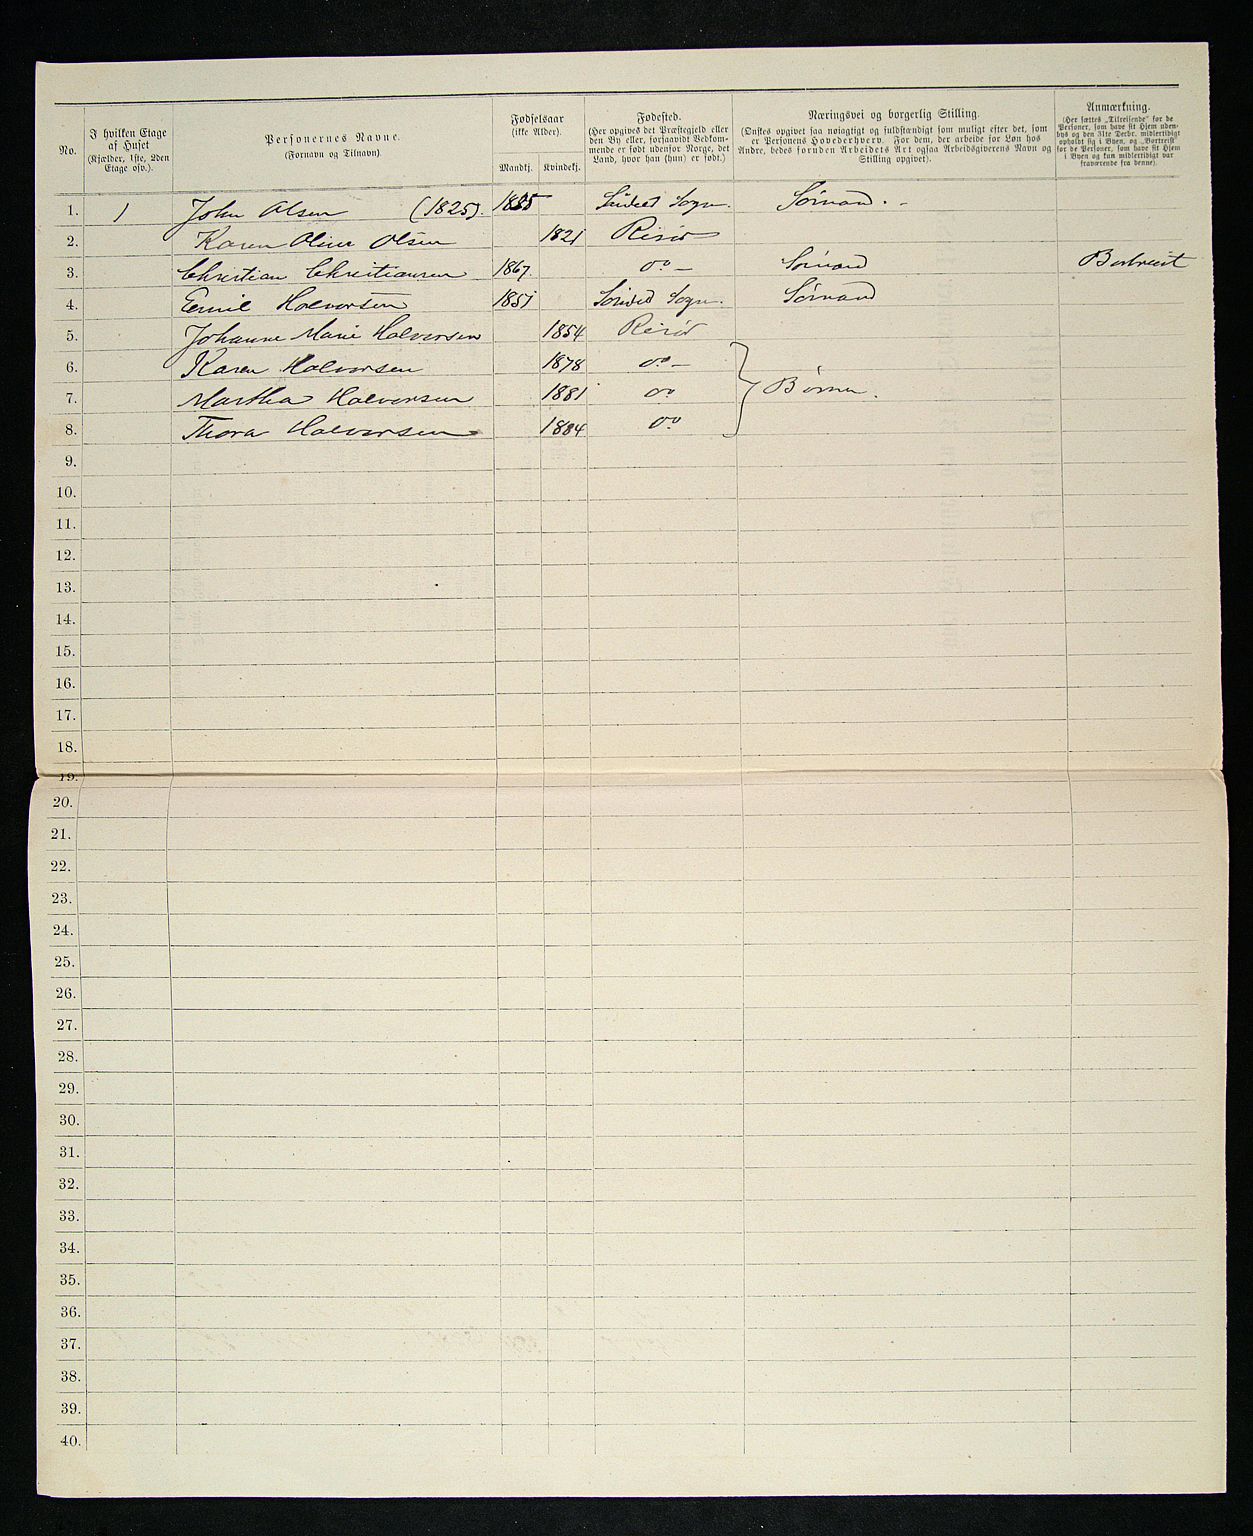 No.
I hvilken Etage af Huset (Kjælder, 1ste, 2den Etage osv.).
Personernes Navne. (Fornavn og Tilnavn)
Fødselsaar (ikke Alder). Mandkj. Kvindekj.
Fødested. (Her opgives det Præstegjeld eller den By eller, forsaavidt Vedkommende er født udenfor Norge, det Land, hvor han (hun) er født.)
Næringsvei og borgerlig Stilling. (Ønskes opgivet saa nøiagtigt og fuldstændigt som muligt efter det, som er Personens Hovederhverv. For dem, der arbeide for Løn hos Andre, bedes foruden Arbeidets Art ogsaa Arbeidsgiverens Navn og Stilling opgivet).
Anmærkning. (Her sættes „Tilreisende" for de Personer, som have sit Hjem udenbys og den 31te Decbr. midlertidigt opholdt sig i Byen, og „Bortreist" for de Personer, som have sit Hjem i Byen og kun midlertidigt var fraværende fra denne).
1. 1 John Olsen (1825). Sogn. Sømand.
2. Karen Olsen 1821 Risør
3. Christian Christiansen 1867. do – Sømand Bortreist
4. Emil Halvorsen 1851 Sogn. Sømand
5. Johanne Marie Halvorsen 1854 Risør
6. Karen Halvorsen 1878 do –
7. Martha Halvorsen 1881 do } Børn.
8. Thora Halvorsen 1884 do
9.
10.
11.
12.
13.
14.
15.
16.
17.
18.
19.
20.
21.
22.
23.
24.
25.
26.
27.
28.
29.
30.
31.
32.
33.
34.
35.
36.
37.
38.
39.
40.